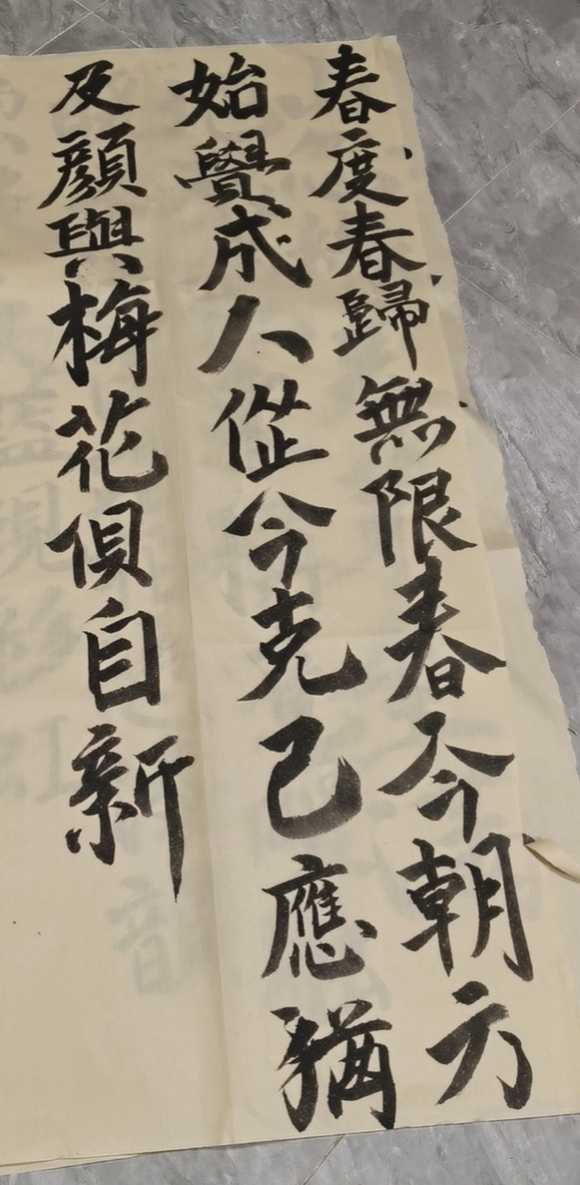 春度春歸無限春今朝方
始覺成人從今克己應猶
及顏與梅花俱自新